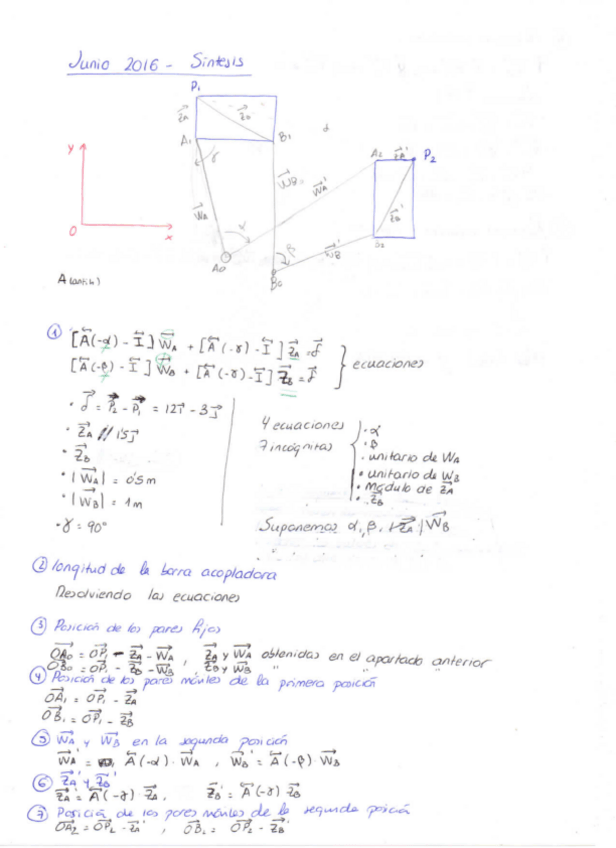 Junio 2016 - Síntesis
P₁
A₁
B₁
A₂
P₂
B₂
A₀
B₀
y
O
x
① [A(-α) - I] W_A + [A(-γ) - I] Z_A = δ
[A(-β) - I] W_B + [A(-γ) - I] Z_B = δ } ecuaciones
• δ = P₂ - P₁ = 12i - 3j
• Z_A // 1'5j
• Z_B
• |W_A| = 0'5m
• |W_B| = 1m
• γ = 90°
4 ecuaciones
7 incógnitas
• α
• β
• unitario de W_A
• unitario de W_B
• módulo de Z_A
• Z_B
Suponemos α, β, W_B
② longitud de la barra acopladora
Resolviendo las ecuaciones
③ Posición de los pares fijos
OA₀ = OP₁ - Z_A - W_A , Z_A y W_A obtenidas en el apartado anterior
OB₀ = OP₁ - Z_B - W_B , Z_B y W_B " "
④ Posición de los pares móviles de la primera posición
OA₁ = OP₁ - Z_A
OB₁ = OP₁ - Z_B
⑤ W_A y W_B en la segunda posición
W_A' = A(-α) · W_A , W_B' = A(-β) · W_B
⑥ Z_A' y Z_B'
Z_A' = A(-γ) Z_A , Z_B' = A(-γ) Z_B
⑦ Posición de los pares móviles de la segunda posición
OA₂ = OP₂ - Z_A' , OB₂ = OP₂ - Z_B'